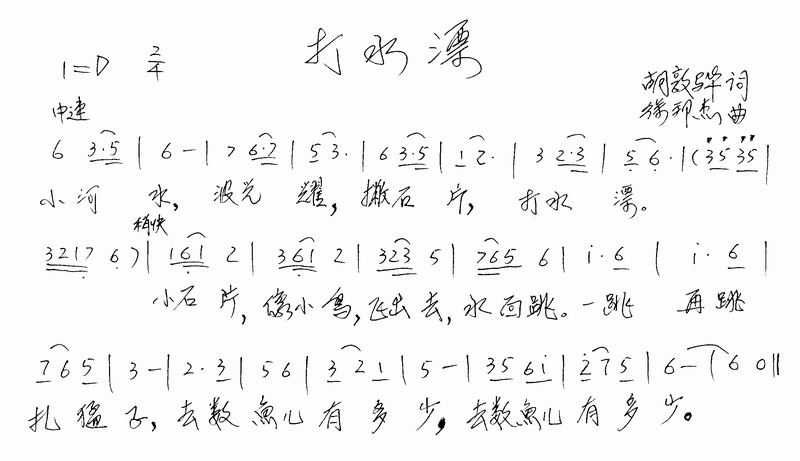 打水漂
1=D 2/4
胡敦骅 词
中速
徐邦杰 曲
6 3·5 | 6 - | 7 6·2 | 5 3· | 6 3·5 | 1 2· | 3 2·3 | 5 6· | (35 35 |
小河 水, 波光 耀, 撒石 片, 打水 漂。
稍快
3217 6) | 161 2 | 361 2 | 323 5 | 765 6 | i· 6 | i· 6 |
小石 片, 像小鸟, 飞出去, 水面跳。一跳 再跳
765 | 3 - | 2· 3 | 5 6 | 3 2 1 | 5 - | 35 6i | 2 7 5 | 6 - | 6 0 ||
扎猛子, 去数鱼儿有多少, 去数鱼儿有多少。